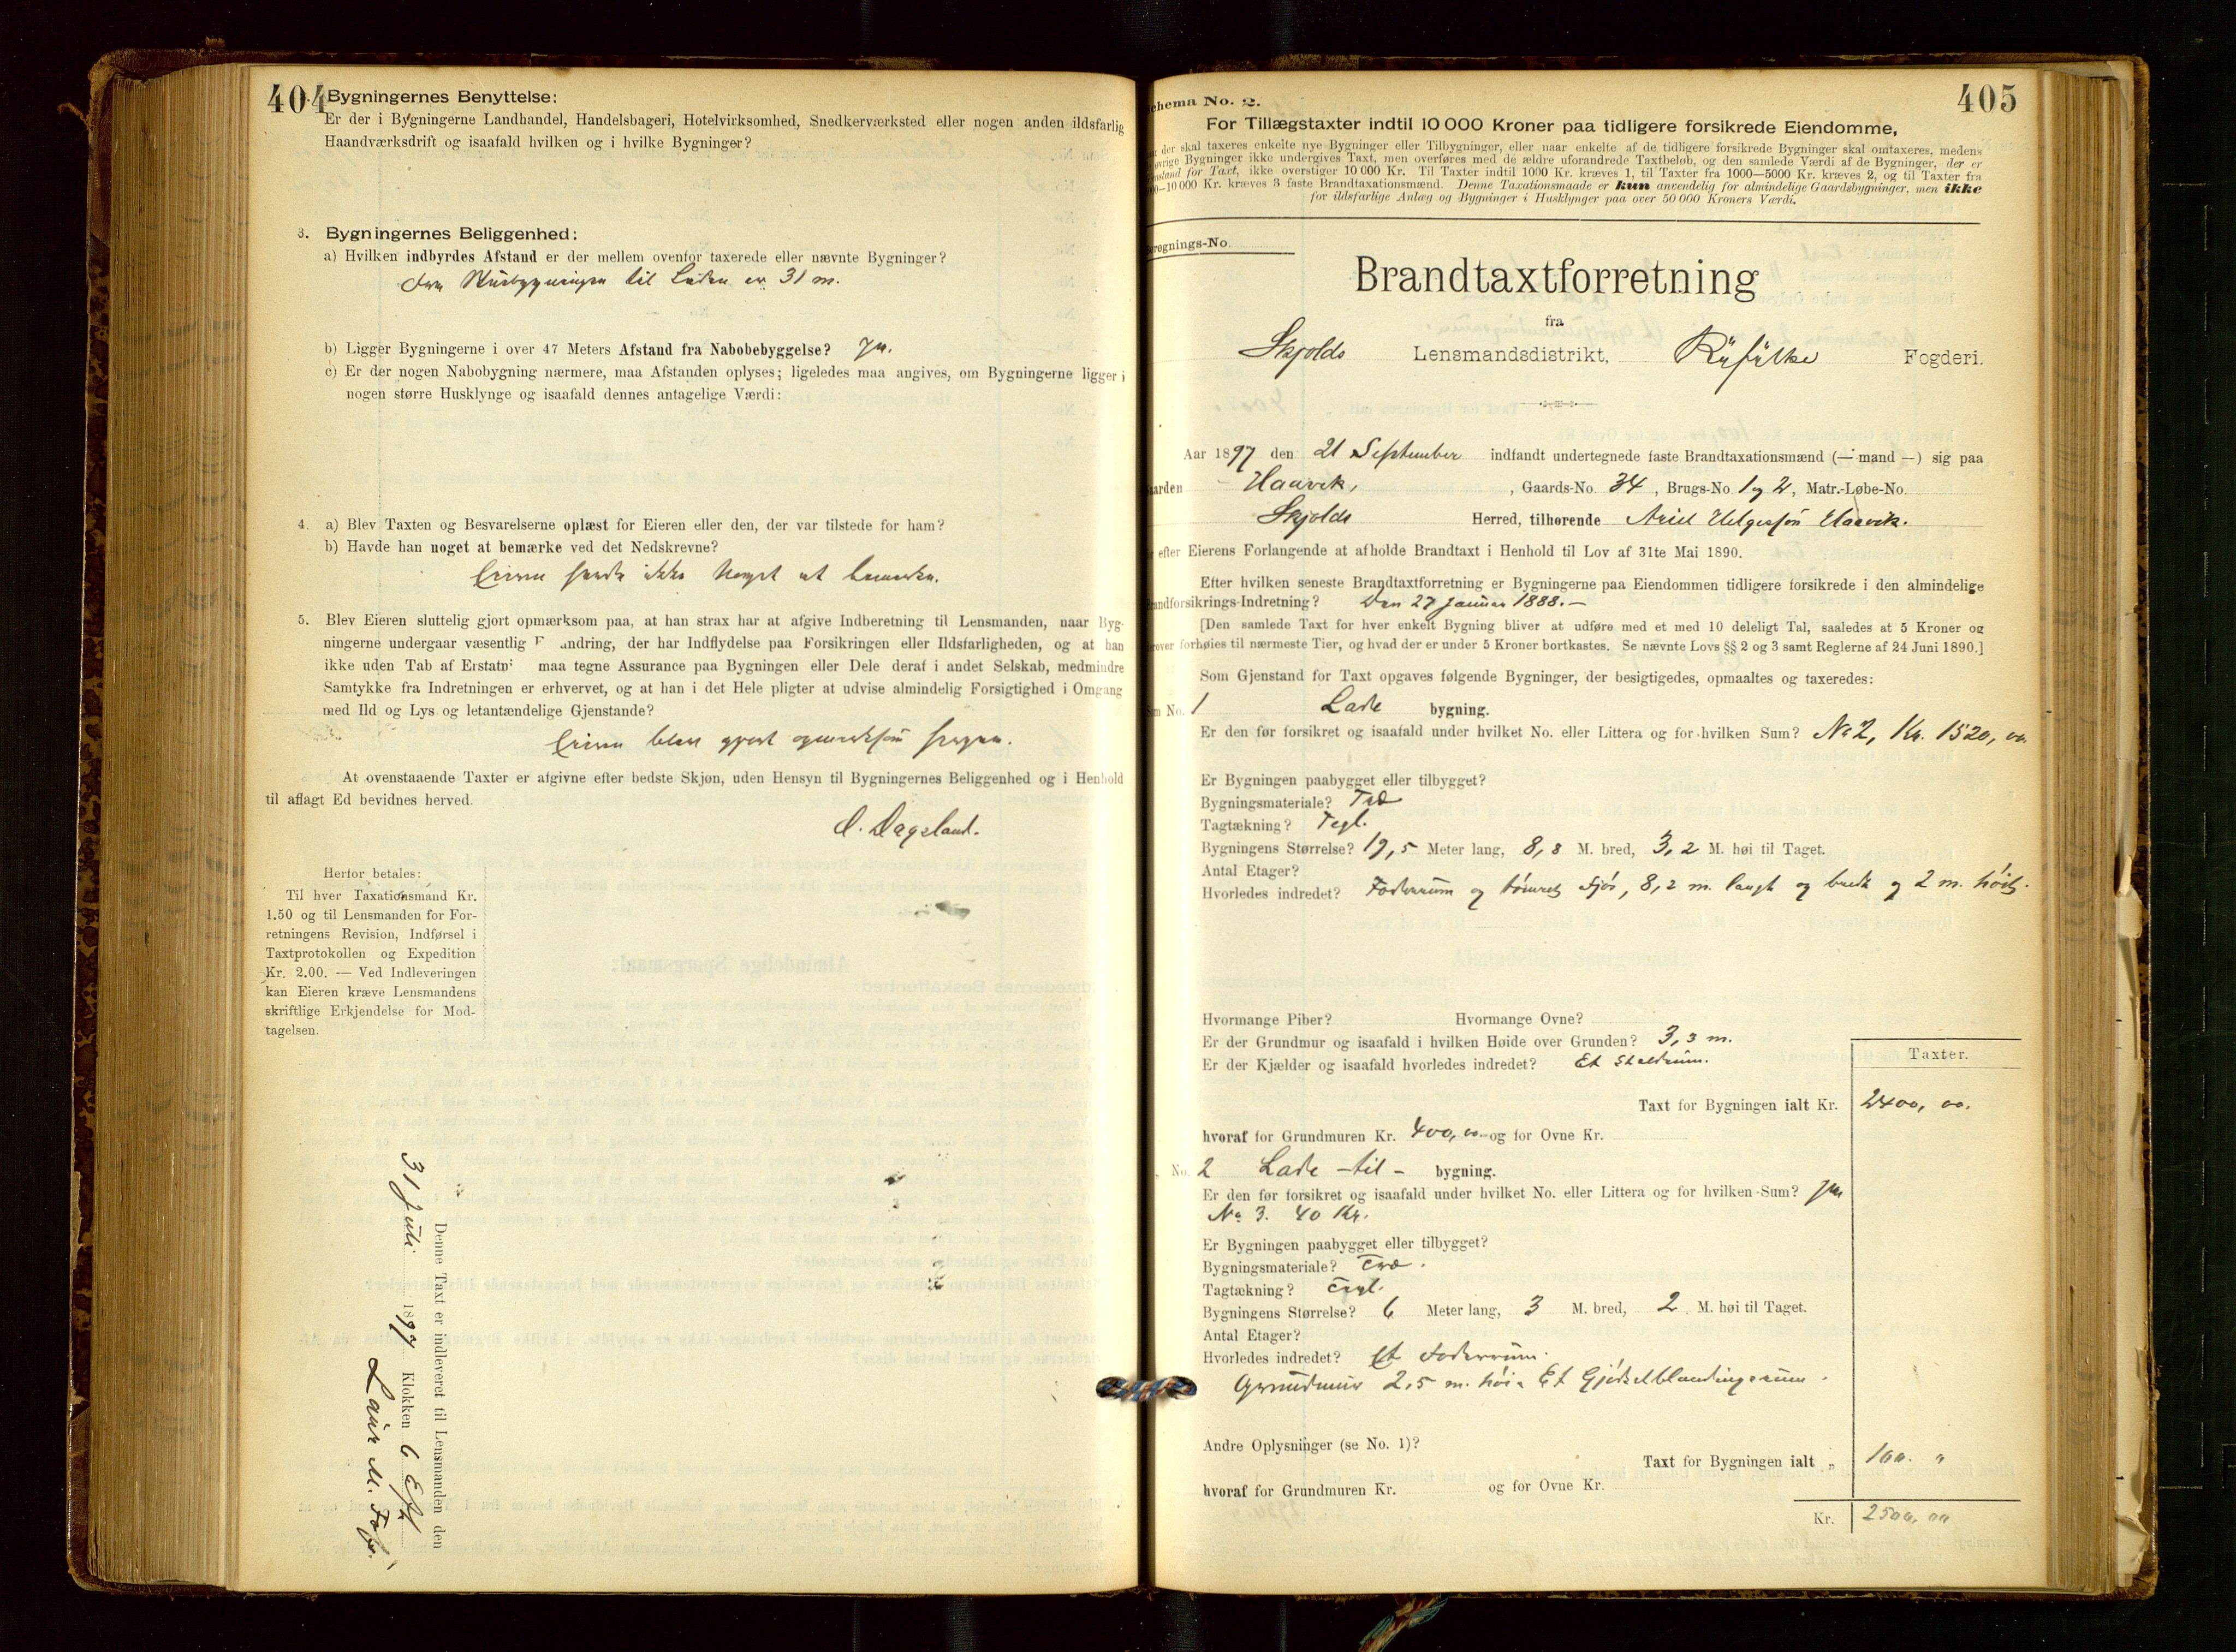 404
Bygningernes Benyttelse:
Er der i Bygningerne Landhandel, Handelsbageri, Hotelvirksomhed, Snedkerværksted eller nogen anden ildsfarlig
Haandværksdrift og isaafald hvilken og i hvilke Bygninger?
3. Bygningernes Beliggenhed:
a) Hvilken indbyrdes Afstand er der mellem ovenfor taxerede eller nævnte Bygninger?
Fra Husbygningen til Laden er 31 m.
b) Ligger Bygningerne i over 47 Meters Afstand fra Nabobebyggelse? Ja.
c) Er der nogen Nabobygning nærmere, maa Afstanden oplyses; ligeledes maa angives, om Bygningerne ligger i
nogen større Husklynge og isaafald dennes antagelige Værdi:
4. a) Blev Taxten og Besvarelserne oplæst for Eieren eller den, der var tilstede for ham?
b) Havde han noget at bemærke ved det Nedskrevne?
Eieren havde ikke noget at bemærke.
5. Blev Eieren sluttelig gjort opmærksom paa, at han strax har at afgive Indberetning til Lensmanden, naar Byg-
ningerne undergaar væsentlig F andring, der har Indflydelse paa Forsikringen eller Ildsfarligheden, og at han
ikke uden Tab af Erstatn maa tegne Assurance paa Bygningen eller Dele deraf i andet Selskab, medmindre
Samtykke fra Indretningen er erhvervet, og at han i det Hele pligter at udvise almindelig Forsigtighed i Omgang
med Ild og Lys og letantændelige Gjenstande?
Eieren blev gjort opmærksom
At ovenstaaende Taxter er afgivne efter bedste Skjøn, uden Hensyn til Bygningernes Beliggenhed og i Henhold
til aflagt Ed bevidnes herved.
O. Dagsland.
Herfor betales:
Til hver Taxationsmand Kr.
1.50 og til Lensmanden for For-
retningens Revision, Indførsel i
Taxtprotokollen og Expedition
Kr. 2.00. — Ved Indleveringen
kan Eieren kræve Lensmandens
skriftlige Erkjendelse for Mod-
tagelsen.
Denne Taxt er indleveret til Lensmanden den
31 Juli 1897 Klokken 6 Eft
405
Schema No. 2.
For Tillægstaxter indtil 10 000 Kroner paa tidligere forsikrede Eiendomme,
der skal taxeres enkelte nye Bygninger eller Tilbygninger, eller naar enkelte af de tidligere forsikrede Bygninger skal omtaxeres, medens
øvrige Bygninger ikke undergives Taxt, men overføres med de ældre uforandrede Taxtbeløb, og den samlede Værdi af de Bygninger, der er
Gjenstand for Taxt, ikke overstiger 10 000 Kr. Til Taxter indtil 1000 Kr. kræves 1, til Taxter fra 1000—5000 Kr. kræves 2, og til Taxter fra
5000—10 000 Kr. kræves 3 faste Brandtaxationsmænd. Denne Taxationsmaade er kun anvendelig for almindelige Gaardsbygninger, men ikke
for ildsfarlige Anlæg og Bygninger i Husklynger paa over 50 000 Kroners Værdi.
Beregnings-No.
Brandtaxtforretning
fra
Skjolds Lensmandsdistrikt, Ryfylke Fogderi.
Aar 1897 den 21 September indfandt undertegnede faste Brandtaxationsmænd (— mand —) sig paa
Gaarden Haavik, , Gaards-No. 34, Brugs-No. 1 og 2, Matr.-Løbe-No.
Skjolds Herred, tilhørende Ariel Helgesøn Haavik.
for efter Eierens Forlangende at afholde Brandtaxt i Henhold til Lov af 31te Mai 1890.
Efter hvilken seneste Brandtaxtforretning er Bygningerne paa Eiendommen tidligere forsikrede i den almindelige
Brandforsikrings-Indretning? Den 27 Januar 1888. —
[Den samlede Taxt for hver enkelt Bygning bliver at udføre med et med 10 deleligt Tal, saaledes at 5 Kroner og
derover forhøies til nærmeste Tier, og hvad der er under 5 Kroner bortkastes. Se nævnte Lovs §§ 2 og 3 samt Reglerne af 24 Juni 1890.]
Som Gjenstand for Taxt opgaves følgende Bygninger, der besigtigedes, opmaaltes og taxeredes:
Som No. 1 Lade bygning.
Er den før forsikret og isaafald under hvilket No. eller Littera og for hvilken Sum? No 2, Kr. 1520, 00
Er Bygningen paabygget eller tilbygget?
Bygningsmateriale? Træ
Tagtækning? Tegl.
Bygningens Størrelse? 19,5 Meter lang, 8,8 M. bred, 3,2 M. høi til Taget.
Antal Etager?
Hvorledes indredet? Foderrum og tømret Fjøs, 8,2 m. langt og bredt og 2 m. høit.
Hvormange Piber? Hvormange Ovne?
Er der Grundmur og isaafald i hvilken Høide over Grunden? 3,3 m.
Er der Kjælder og isaafald hvorledes indredet? Et Staldrum.
Taxter.
Taxt for Bygningen ialt Kr. 2400, 00.
hvoraf for Grundmuren Kr. 400,00 og for Ovne Kr.
No. 2 Lade -til- bygning.
Er den før forsikret og isaafald under hvilket No. eller Littera og for hvilken Sum? Ja
No 3. 40 Kr.
Er Bygningen paabygget eller tilbygget?
Bygningsmateriale? Træ.
Tagtækning? Tegl.
Bygningens Størrelse? 6 Meter lang, 3 M. bred, 2 M. høi til Taget.
Antal Etager?
Hvorledes indredet? Et Foderrum.
Grundmur 2,5 m. høi. Et Gjødselblandingsrum.
Andre Oplysninger (se No. 1)?
Taxt for Bygningen ialt „ 100. "
hvoraf for Grundmuren Kr. og for Ovne Kr.
Kr. 2500, 00